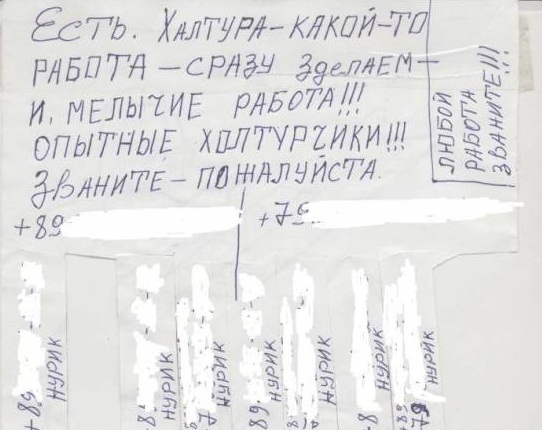 ЕСТЬ. ХАЛТУРА-КАКОЙ-ТО
РАБОТА-СРАЗУ ЗДЕЛАЕМ-
И, МЕЛЫЧИЕ РАБОТА!!!
ОПЫТНЫЕ ХОЛТУРЧИКИ!!!
ЗВАНИТЕ-ПОЖАЛУЙСТА.
ЛЮБОЙ
РАБОТА
ЗВАНИТЕ!!!
+89
+79
+89
НУРИК
НУРИК
НУРИК
НУРИК
НУРИК
НУРИК
НУРИК